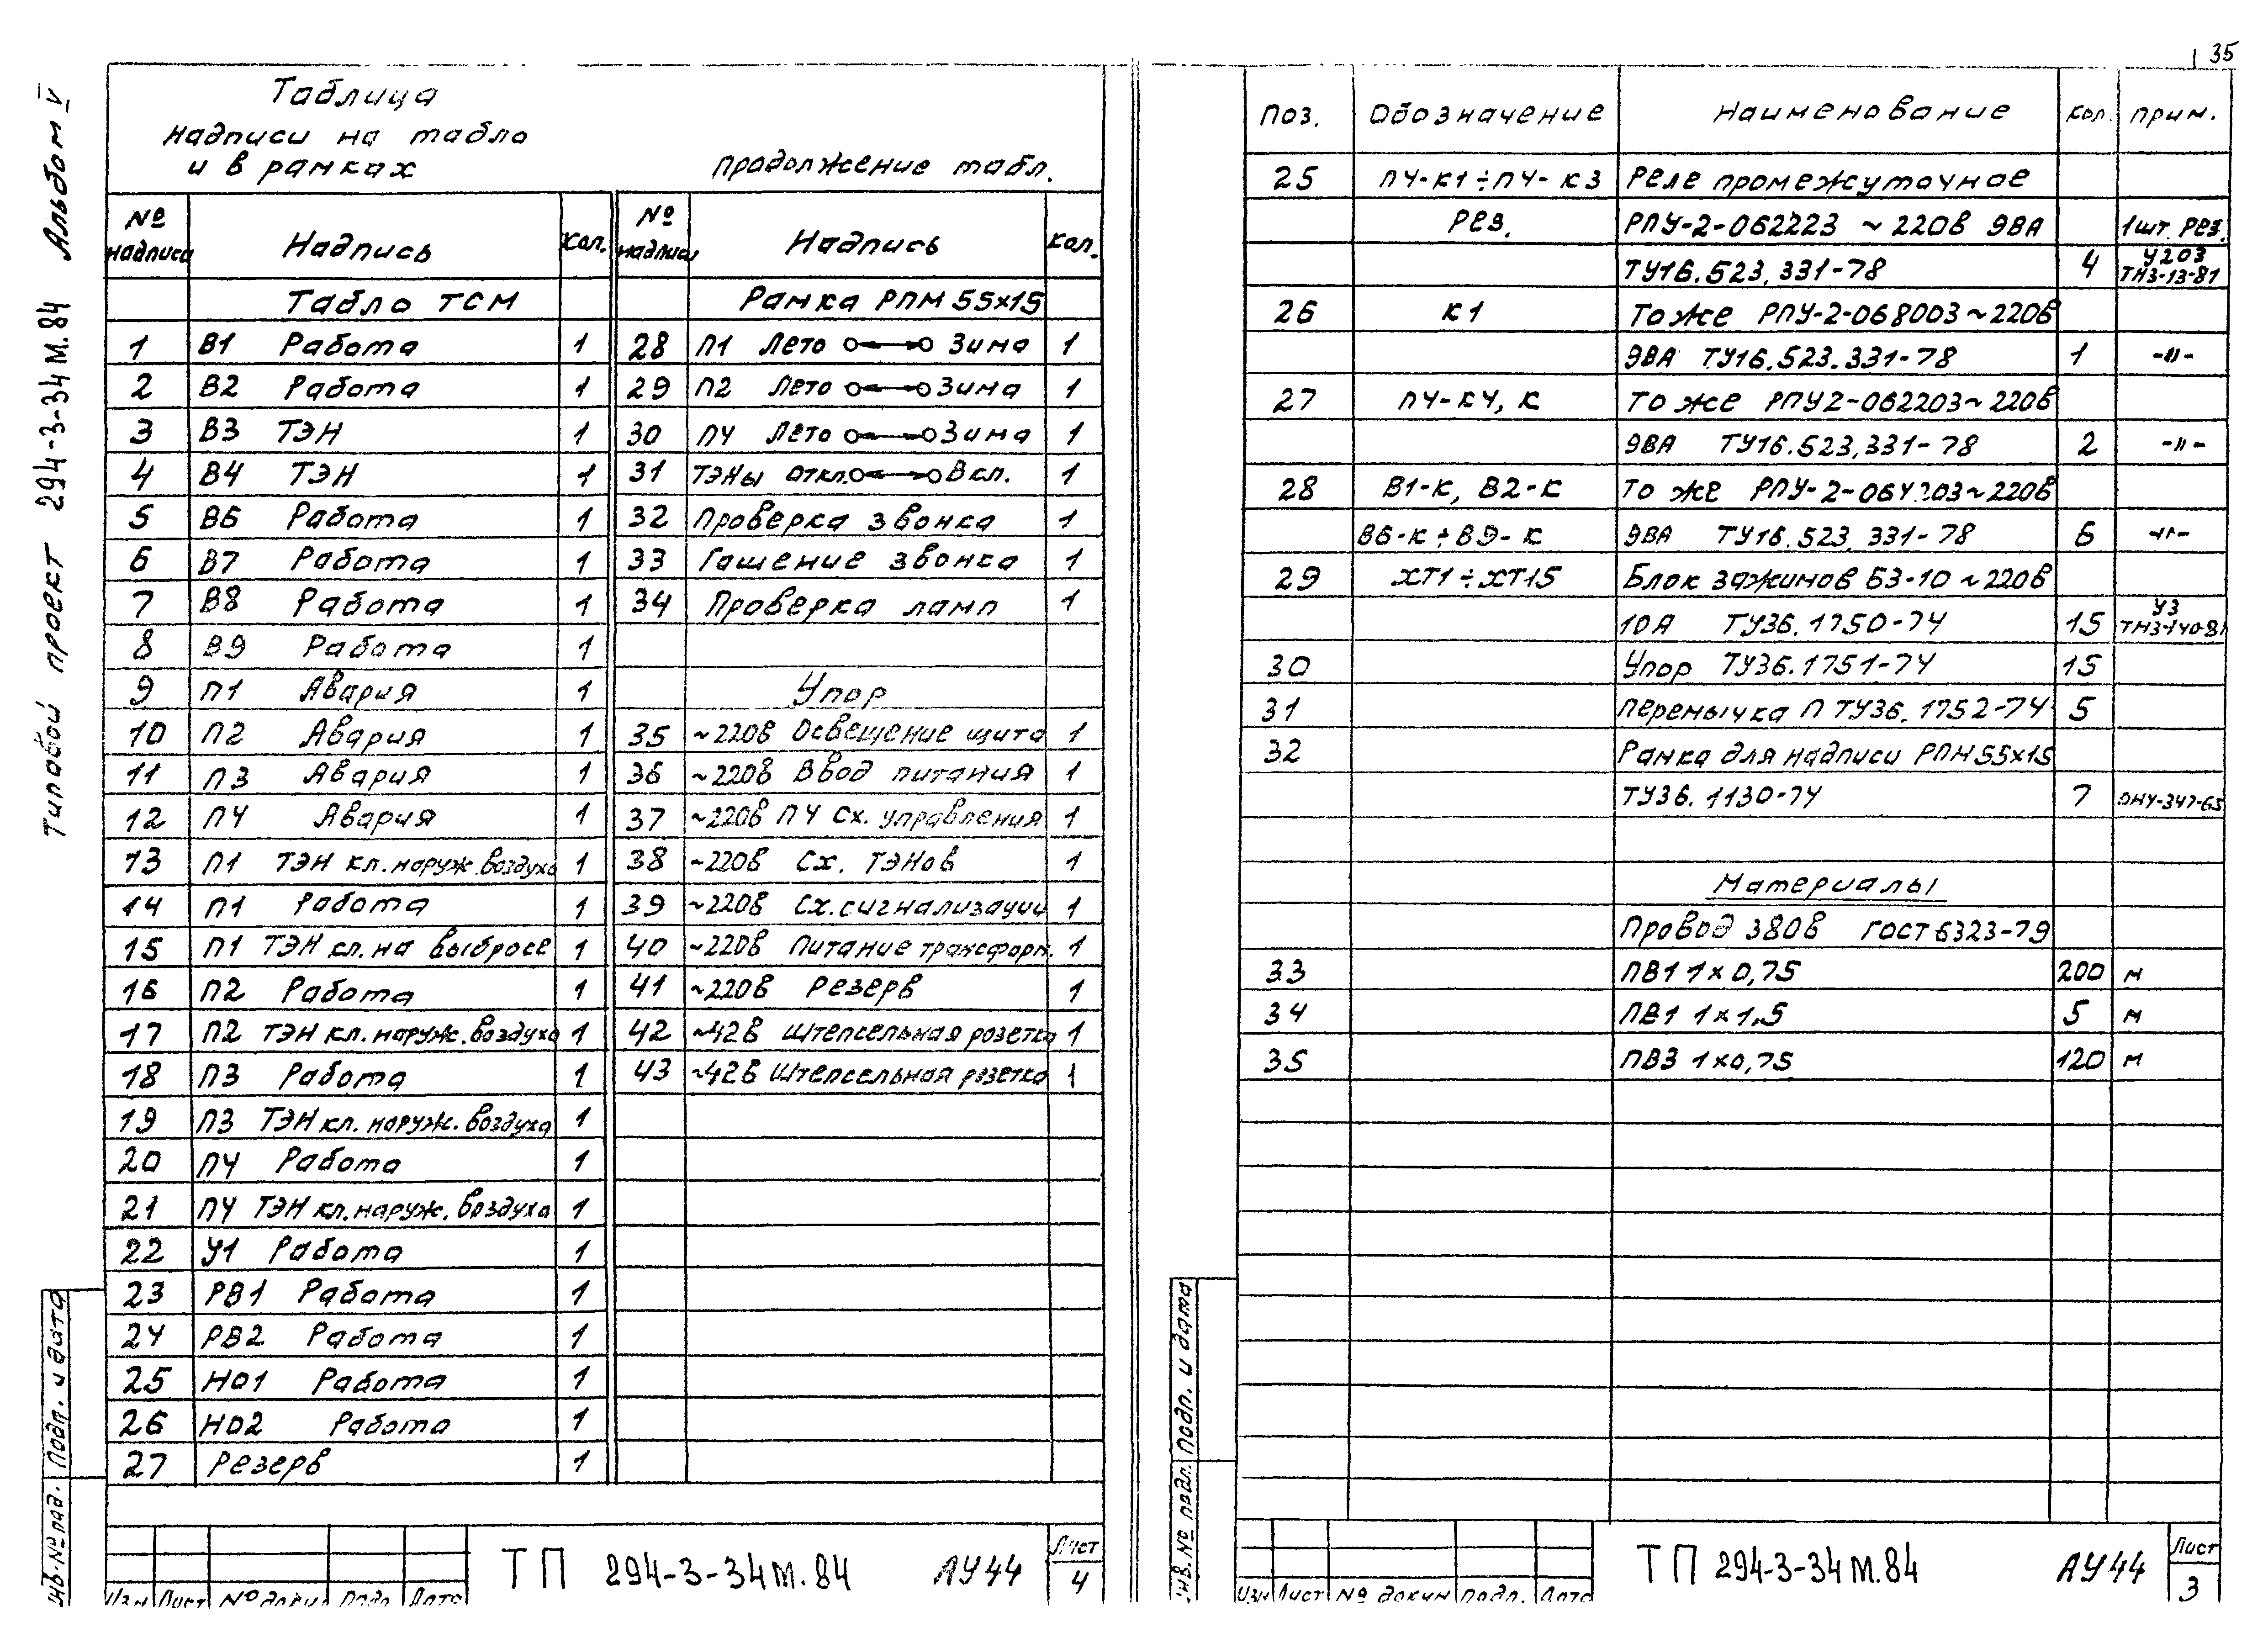 35
Типовой проект 294-3-34м.84 Альбом V
Таблица
надписи на табло
и в рамках
продолжение табл.
№ надписи Надпись кол. № надписи Надпись кол.
Табло ТСМ Рамка РПМ 55х15
1 В1 Работа 1 28 П1 Лето Зима 1
2 В2 Работа 1 29 П2 Лето Зима 1
3 В3 ТЭН 1 30 П4 Лето Зима 1
4 В4 ТЭН 1 31 ТЭНы откл. Вкл. 1
5 В6 Работа 1 32 Проверка звонка 1
6 В7 Работа 1 33 Гашение звонка 1
7 В8 Работа 1 34 Проверка ламп 1
8 В9 Работа 1
9 П1 Авария 1 Упор
10 П2 Авария 1 35 ~220в Освещение щита 1
11 П3 Авария 1 36 ~220в Ввод питания 1
12 П4 Авария 1 37 ~220в П4 Сх. управления 1
13 П1 ТЭН кл. наруж. воздуха 1 38 ~220в Сх. ТЭНов 1
14 П1 Работа 1 39 ~220в Сх. сигнализации 1
15 П1 ТЭН кл. на выбросе 1 40 ~220в Питание трансформ. 1
16 П2 Работа 1 41 ~220в Резерв 1
17 П2 ТЭН кл. наруж. воздуха 1 42 ~42в Штепсельная розетка 1
18 П3 Работа 1 43 ~42в Штепсельная розетка 1
19 П3 ТЭН кл. наруж. воздуха 1
20 П4 Работа 1
21 П4 ТЭН кл. наруж. воздуха 1
22 У1 Работа 1
23 РВ1 Работа 1
24 РВ2 Работа 1
25 НО1 Работа 1
26 НО2 Работа 1
27 Резерв 1
Инв. № подл. Подп. и дата
Изм Лист № докум Подп. Дата
ТП 294-3-34м.84 АУ44
Лист
4
Поз. Обозначение Наименование кол. прим.
25 П4-К1÷П4-К3 Реле промежуточное
Рез. РПУ-2-062223 ~220в ЭВА 1шт. Рез.
ТУ16.523.331-78 4 У203 ТМ3-13-81
26 К1 То же РПУ-2-068003~220в
ЭВА ТУ16.523.331-78 1 -"-
27 П4-К4, К То же РПУ2-062203~220в
ЭВА ТУ16.523.331-78 2 -"-
28 В1-К, В2-К То же РПУ-2-064203~220в
В6-К÷В9-К ЭВА ТУ16.523.331-78 6 -"-
29 ХТ1÷ХТ15 Блок зажимов БЗ-10 ~220в
10А ТУ36.1750-74 15 У3 ТМ3-140-81
30 Упор ТУ36.1751-74 15
31 Перемычка П ТУ36.1752-74 5
32 Рамка для надписи РПМ55х15
ТУ36.1130-74 7
Материалы
Провод 380в ГОСТ 6323-79
33 ПВ1 1х0,75 200 м
34 ПВ1 1х1,5 5 м
35 ПВ3 1х0,75 120 м
Инв. № подл. Подп. и дата
Изм Лист № докум Подп. Дата
ТП 294-3-34м.84 АУ44
Лист
3